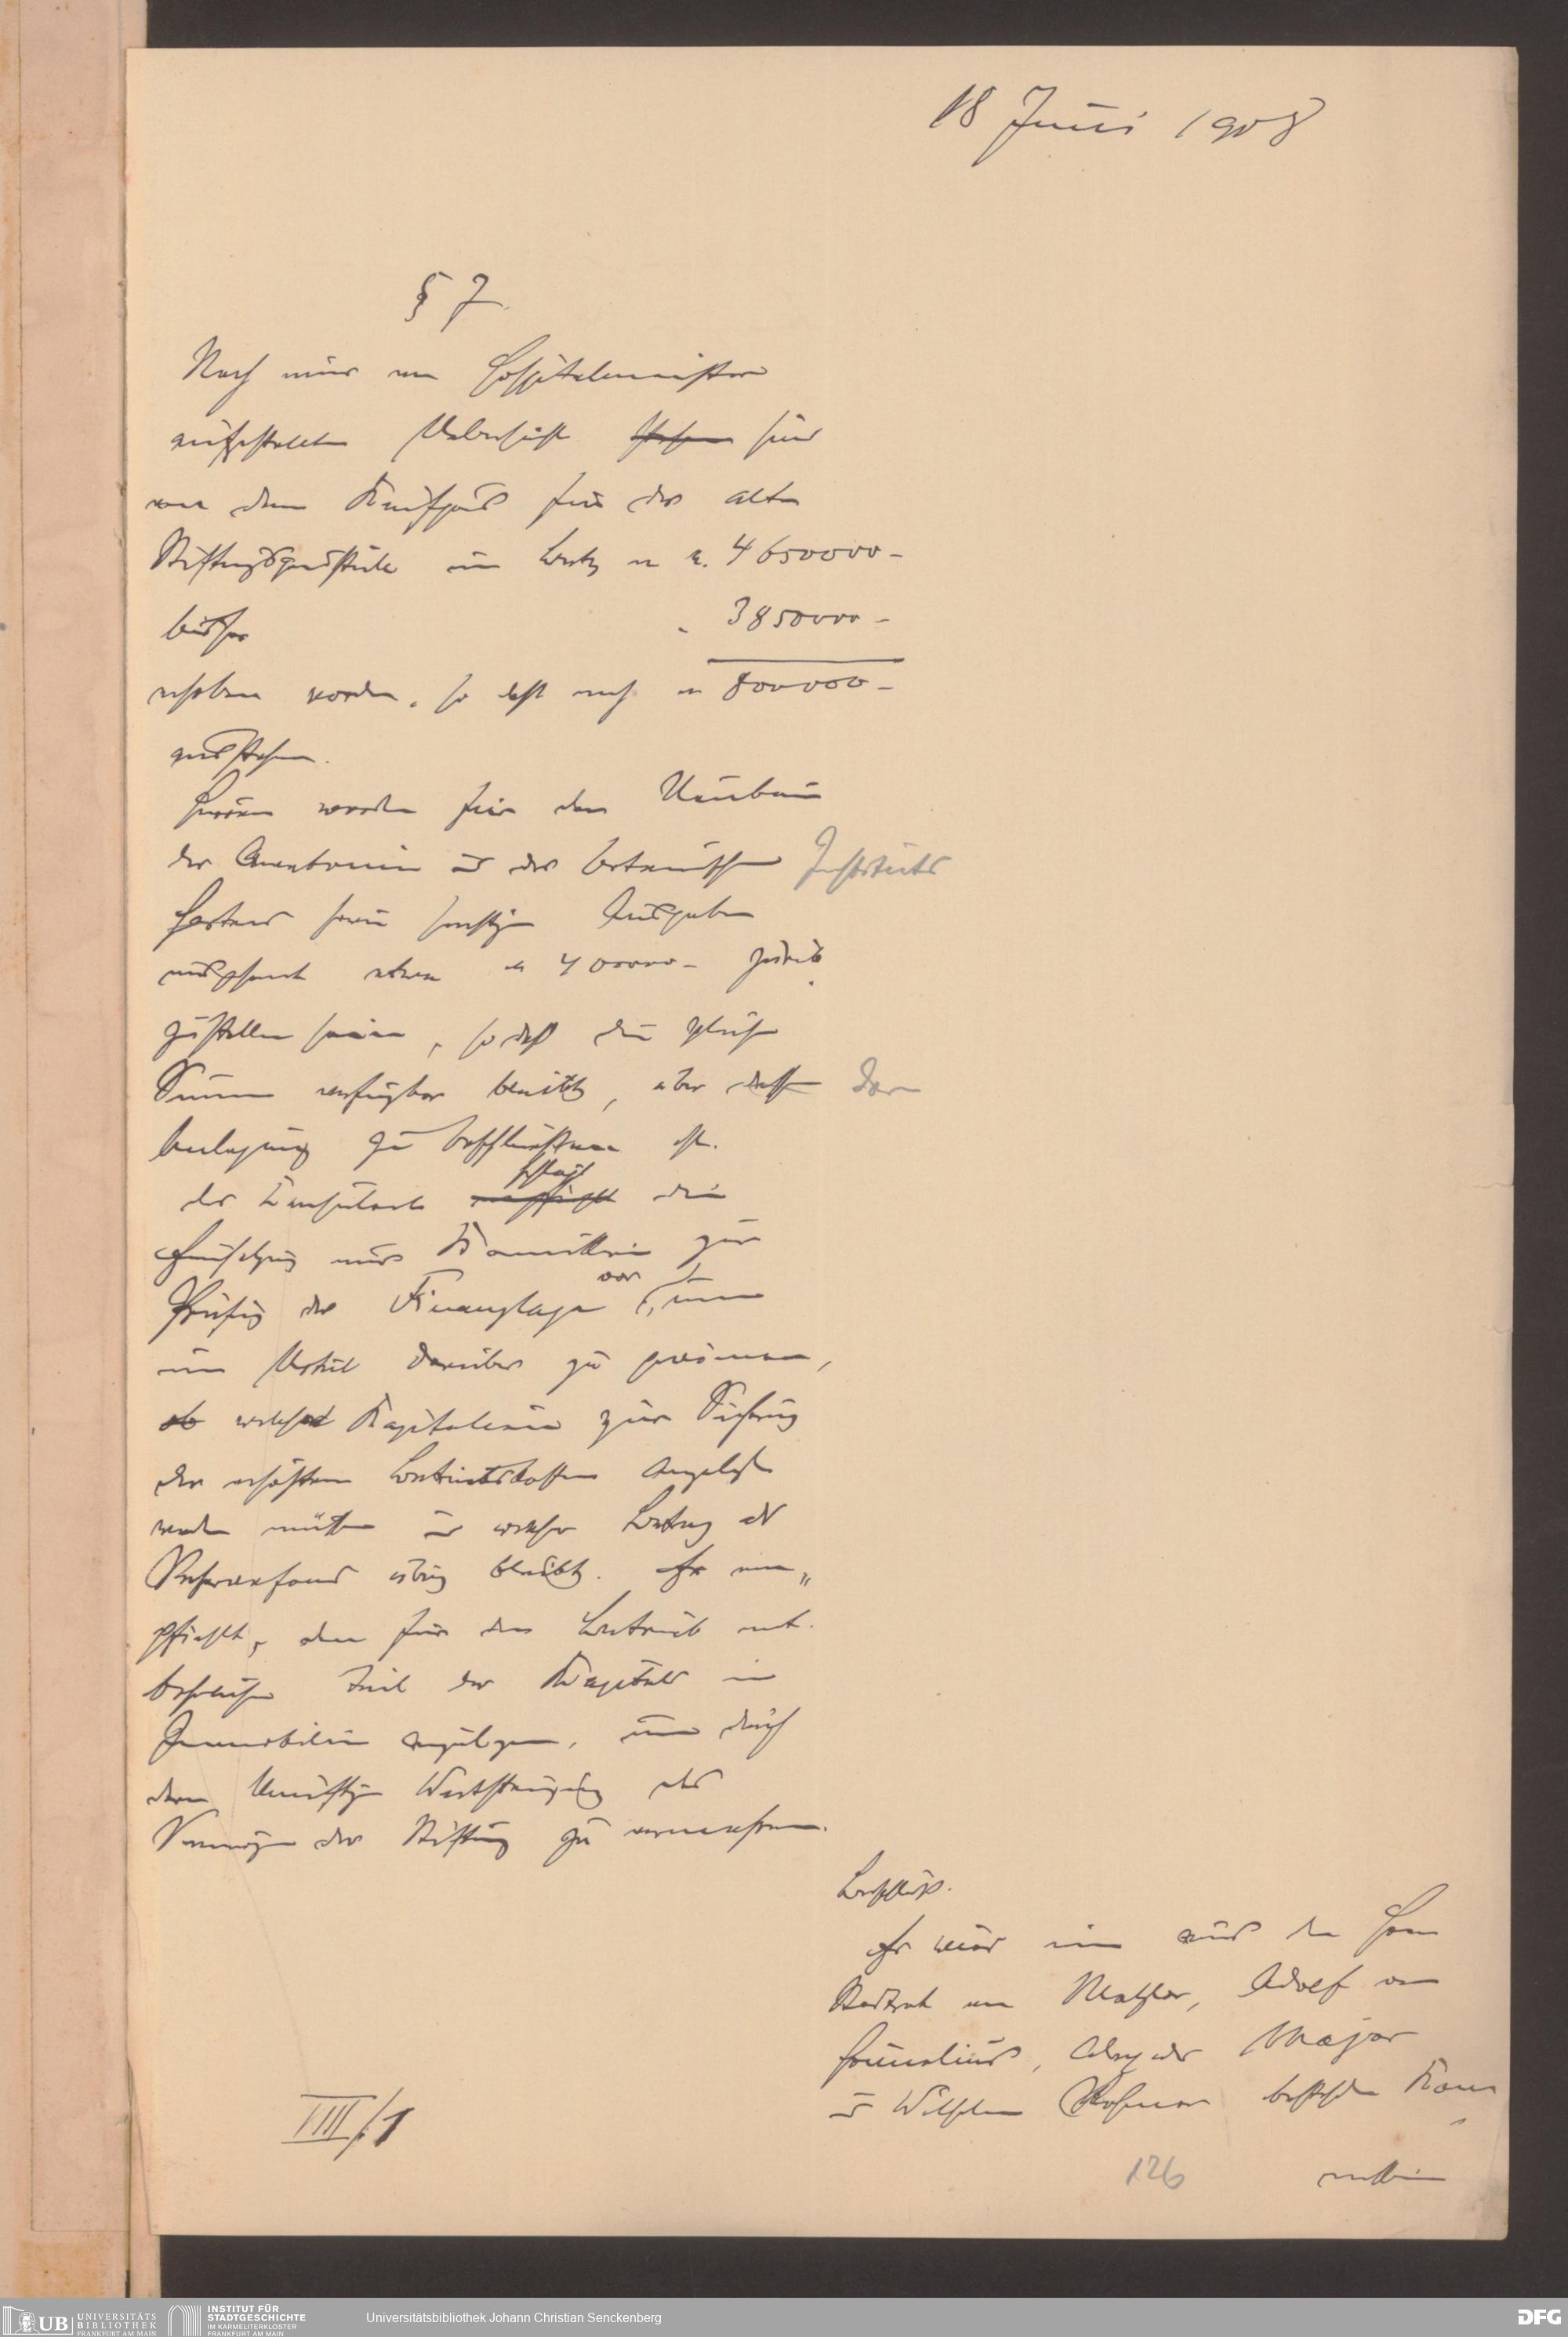 18 Juni 1908
§ 7.
Nach einer vom Hospitalmeister
aufgestellten Uebersicht stehen sind
von dem Kaufpreis für das alte
Stiftungsgrundstück im Betrag von M. 4650000.-
bisher " 3850000.-
erhoben worden, so daß noch M 800000.-
ausstehen.
Hievon werden für den Neubau
der Anatomie u des botanischen Instituts
Gartens sowie sonstige Ausgaben
insgesamt etwa M 400000.- zurück
zustellen seien, so daß die gleiche
Summe verfügbar bleibt, über deren
Anlegung zu beschließen ist.
Der Konsulent schlägt die
Einsetzung einer Kommission zur
Prüfung der Finanzlage vor, um
ein Urteil darüber zu gewinnen,
ob welches Kapital zur Sicherung
der erhöhten Betriebskosten angelegt
werden müsse u welcher Betrag als
Reservefond übrig bleibt. Er em-
pfiehlt, den für den Betrieb ent-
behrlichen Teil des Kapitals in
Immobilien anzulegen, um durch
deren künftige Wertsteigerung das
Vermögen der Stiftung zu vermehren.
Beschluß.
Es wird eine aus den Herren
Stadtrat von Metzler, Adolf von
Grunelius, Alexander Majer
u Wilhelm bestehende Kom
mission
III/1
126
UB UNIVERSITÄTS BIBLIOTHEK FRANKFURT AM MAIN
INSTITUT FÜR STADTGESCHICHTE IM KARMELITERKLOSTER FRANKFURT AM MAIN
Universitätsbibliothek Johann Christian Senckenberg
DFG